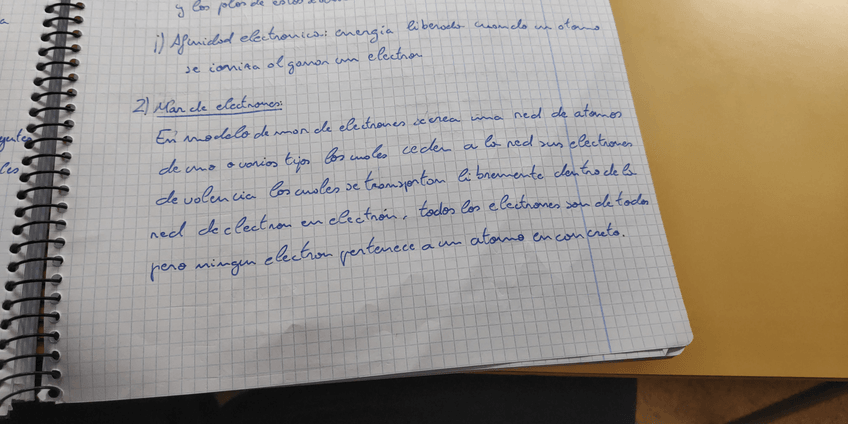 y los
i) Afinidad electronica: energia liberada cuando un atomo
se ioniza al ganar un electron
2) Mar de electrones:
En modelo de mar de electrones se crea una red de atomos
de uno o varios tipos los cuales ceden a la red sus electrones
de valencia los cuales se transportan libremente dentro de la
red de electron en electrón, todos los electrones son de todos
pero ningun electron pertenece a un atomo en concreto.